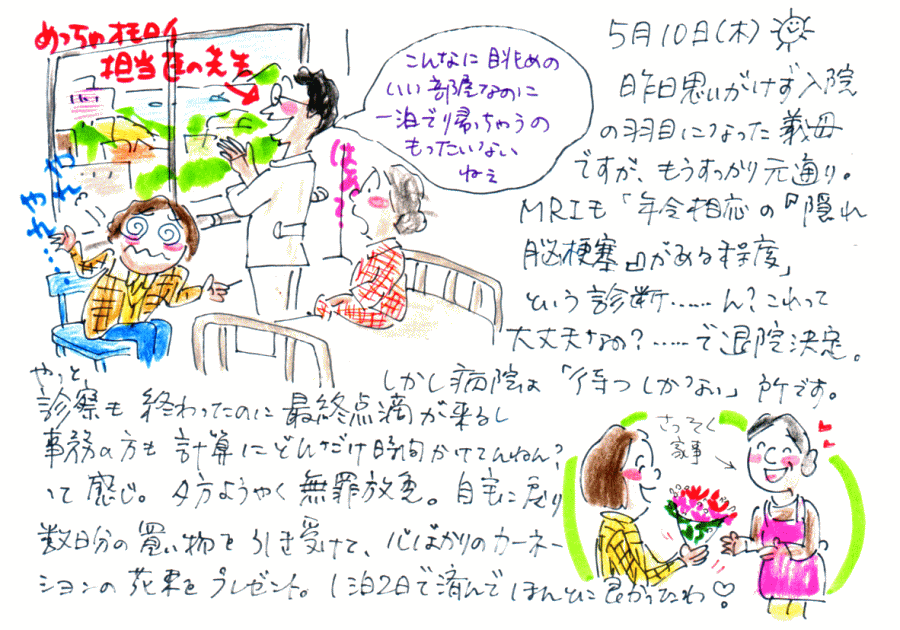 めっちゃオモロイ
担当医の先生
こんなに眺めの
いい部屋なのに
一泊で帰っちゃうの
もったいない
ねぇ
はぁ〜
やれやれ…
5月10日(木)
昨日思いがけず入院
の羽目になった義母
ですが、もうすっかり元通り。
MRIも「年令相応の『隠れ
脳梗塞』がある程度」
という診断……ん?これって
大丈夫なの?……で退院決定。
しかし病院は「待つしかない」所です。
やっと、
診察も終わったのに最終点滴が来るし
事務の方も計算にどんだけ時間かけてんねん?
って感じ。夕方ようやく無罪放免。自宅に戻り
数日分の買い物を引き受けて、心ばかりのカーネー
ションの花束をプレゼント。1泊2日で済んでほんとに良かったわ♡
さっそく
家事